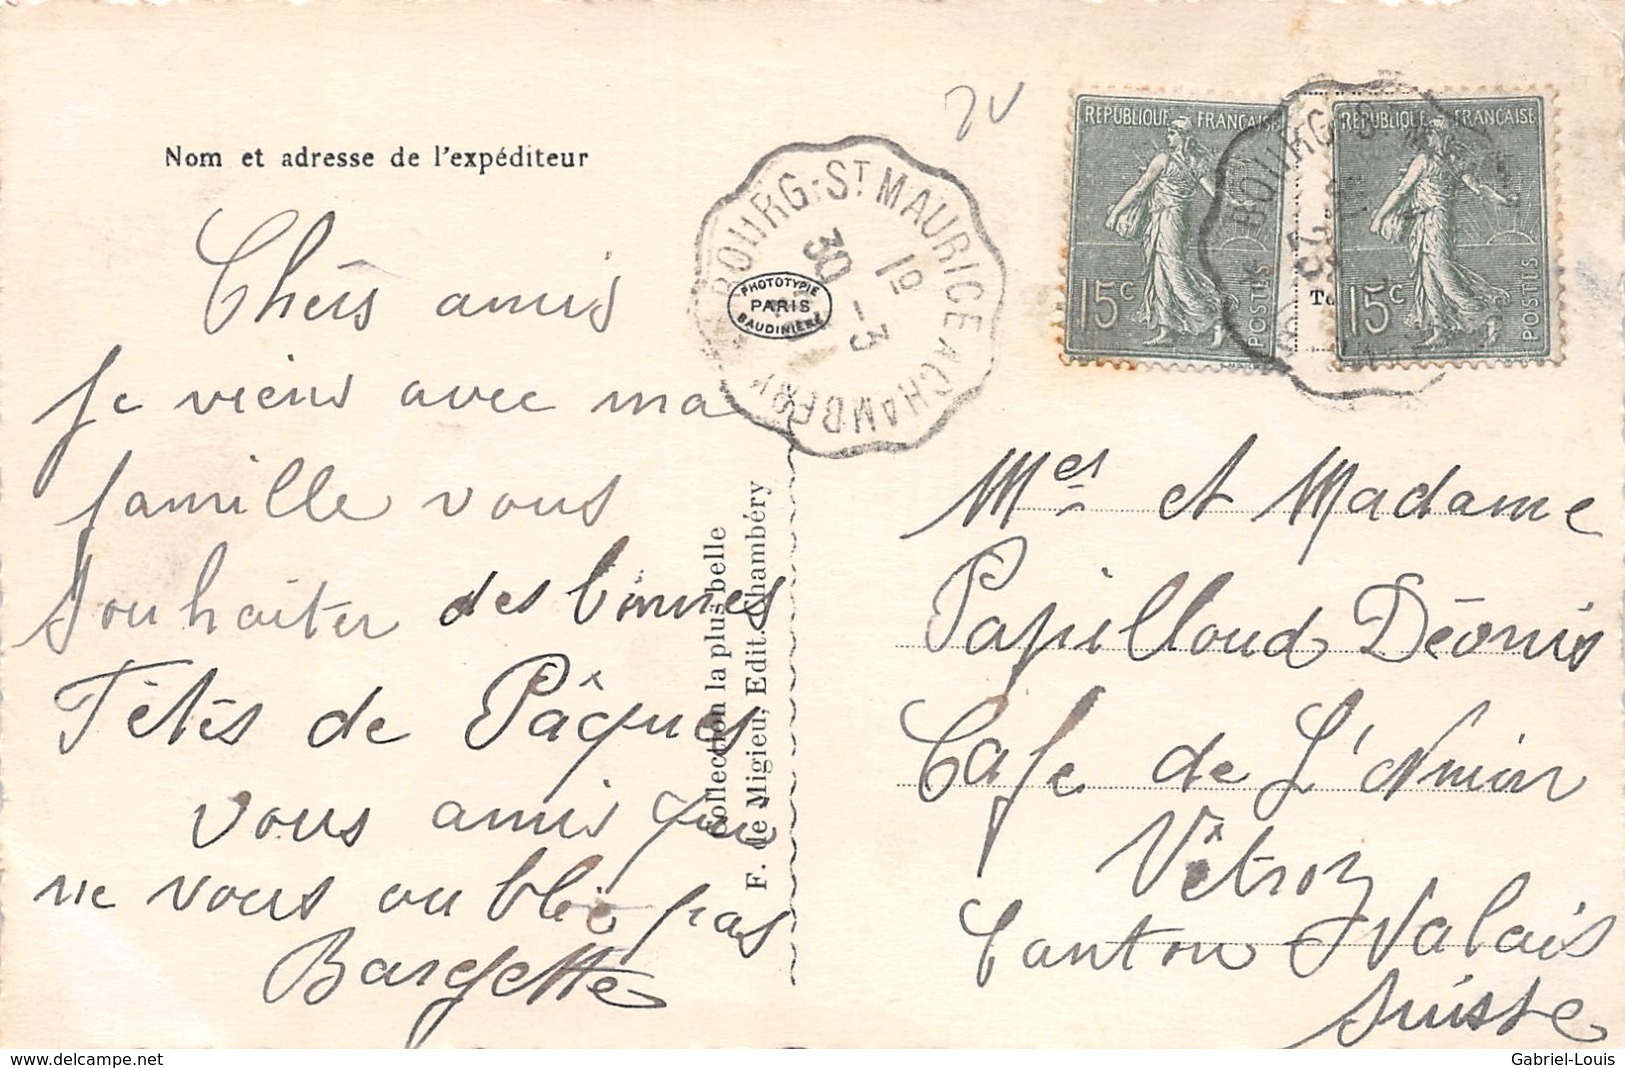 Nom et adresse de l'expéditeur
Chèrs amis
Je viens avec ma
famille vous
souhaiter des bonnes
Fêtes de Pâques
vous amis que
ne vous oublie pas
Bargette
BOURG-ST MAURICE A CHAMBERY
30 -3
PHOTOTYPIE
PARIS
BAUDINIÈRE
Collection la plus belle
F. de Migieu, Edit. Chambéry
RÉPUBLIQUE FRANÇAISE
15c
POSTES
RÉPUBLIQUE FRANÇAISE
15c
POSTES
BOURG ST
Mer et Madame
Papilloud Déonis
Cafe de L'Union
Vêtroz
Canton Valais
Suisse
www.delcampe.net
Gabriel-Louis